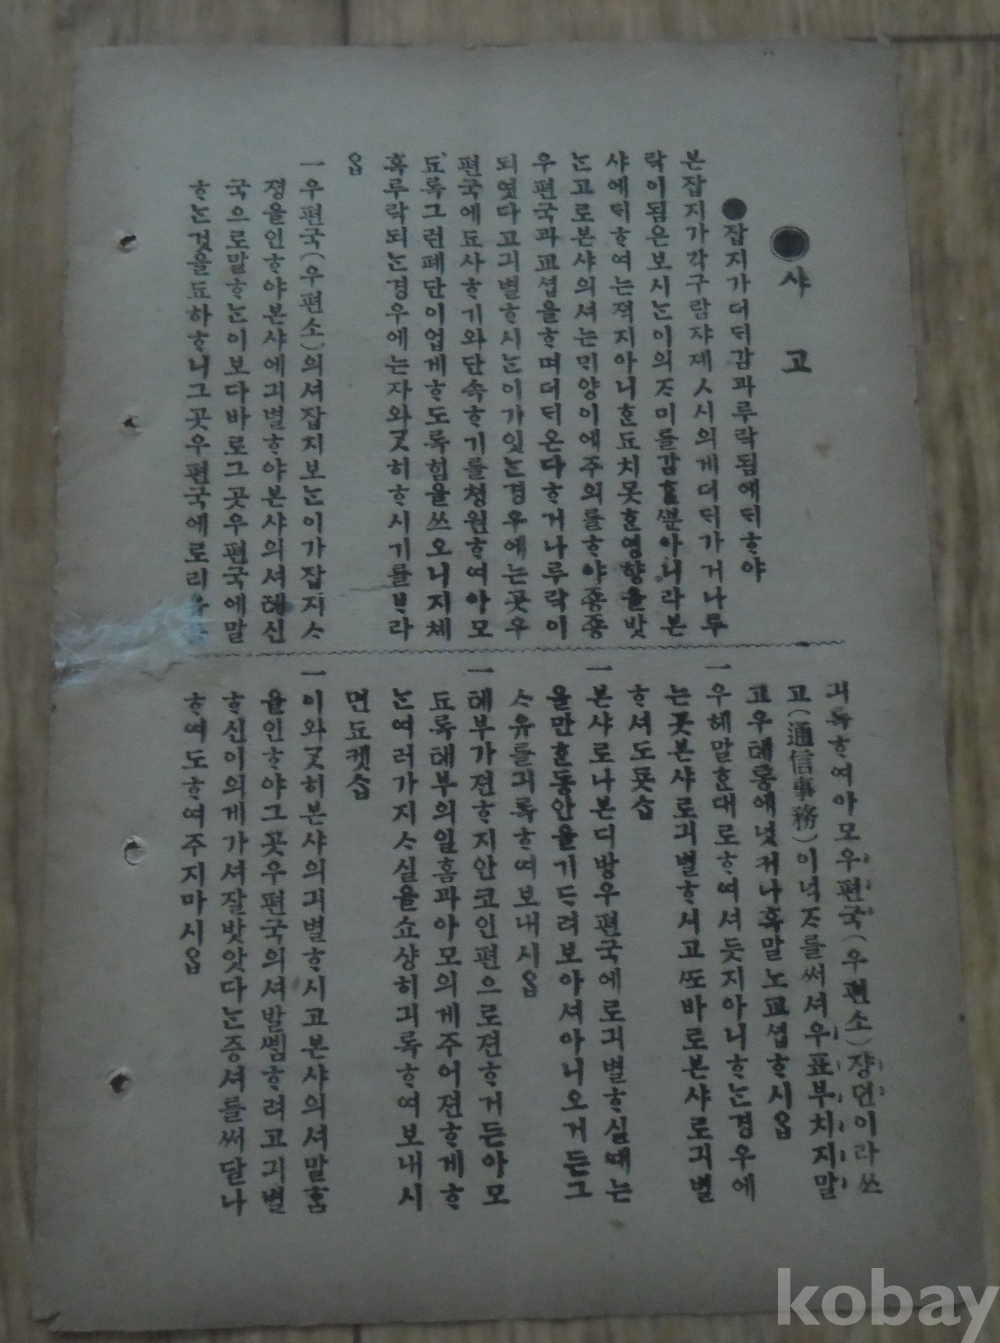 ◉샤고
●잡지가더듸감과루락됨에듸ᄒᆞ야
본잡지가각구람쟈졔ㅅ시의게더듸가거나루
락이됨은보시ᄂᆞᆫ이의ᄌᆞ미를감ᄒᆞᆯᄲᅮᆫ아니라본
샤에듸ᄒᆞ여는젹지아니ᄒᆞᆫ됴치못ᄒᆞᆫ영향을밧
ᄂᆞᆫ고로본샤의셔는ᄆᆡ양이에주의를ᄒᆞ야죵죵
우편국과교셥을ᄒᆞ며더듸온다ᄒᆞ거나루락이
되엿다고긔별ᄒᆞ시ᄂᆞᆫ이가잇ᄂᆞᆫ경우에는곳우
편국에됴사ᄒᆞ기와단속ᄒᆞ기를쳥원ᄒᆞ여아모
됴록그런폐단이업게ᄒᆞ도록힘을쓰오니지체
혹루락되ᄂᆞᆫ경우에는자와ᄀᆞᆺ히ᄒᆞ시기를ᄇᆞ라
옵
一우편국(우편소)의셔잡지보ᄂᆞᆫ이가잡지ㅅ
졍을인ᄒᆞ야본샤에긔별ᄒᆞ야본샤의셔톄신
국으로말ᄒᆞᄂᆞᆫ이보다바로그곳우편국에말
ᄒᆞᄂᆞᆫ것을됴하ᄒᆞ니그곳우편국에로리
긔록ᄒᆞ여아모우편국(우편소)쟝뎐이라쓰
고(通信事務)이넉ᄌᆞ를써셔우표부치지말
고우톄통에넛커나혹말노교셥ᄒᆞ시옵
一우헤말ᄒᆞᆫ대로ᄒᆞ여셔듯지아니ᄒᆞᄂᆞᆫ경우에
는곳본샤로긔별ᄒᆞ시고ᄯᅩ바로본샤로긔별
ᄒᆞ셔도됴습
一본샤로나본디방우편국에로긔별ᄒᆞ실ᄯᅢ는
을만ᄒᆞᆫ동안을기ᄃᆞ려보아셔아니오거든그
ᄉᆞ유를긔록ᄒᆞ여보내시옵
一톄부가젼ᄒᆞ지안코인편으로젼ᄒᆞ거든아모
됴록톄부의일홈과아모의게주어젼ᄒᆞ게ᄒᆞ
ᄂᆞᆫ여러가지ᄉᆞ실을쇼샹히긔록ᄒᆞ여보내시
면됴켓습
一이와ᄀᆞᆺ히본샤의긔별ᄒᆞ시고본샤의셔말ᄒᆞᆷ
을인ᄒᆞ야그곳우편국의셔발ᄲᅦᆷᄒᆞ려고긔별
ᄒᆞ신이의게가셔잘밧앗다ᄂᆞᆫ증셔를써달나
ᄒᆞ여도ᄒᆞ여주지마시옵
kobay